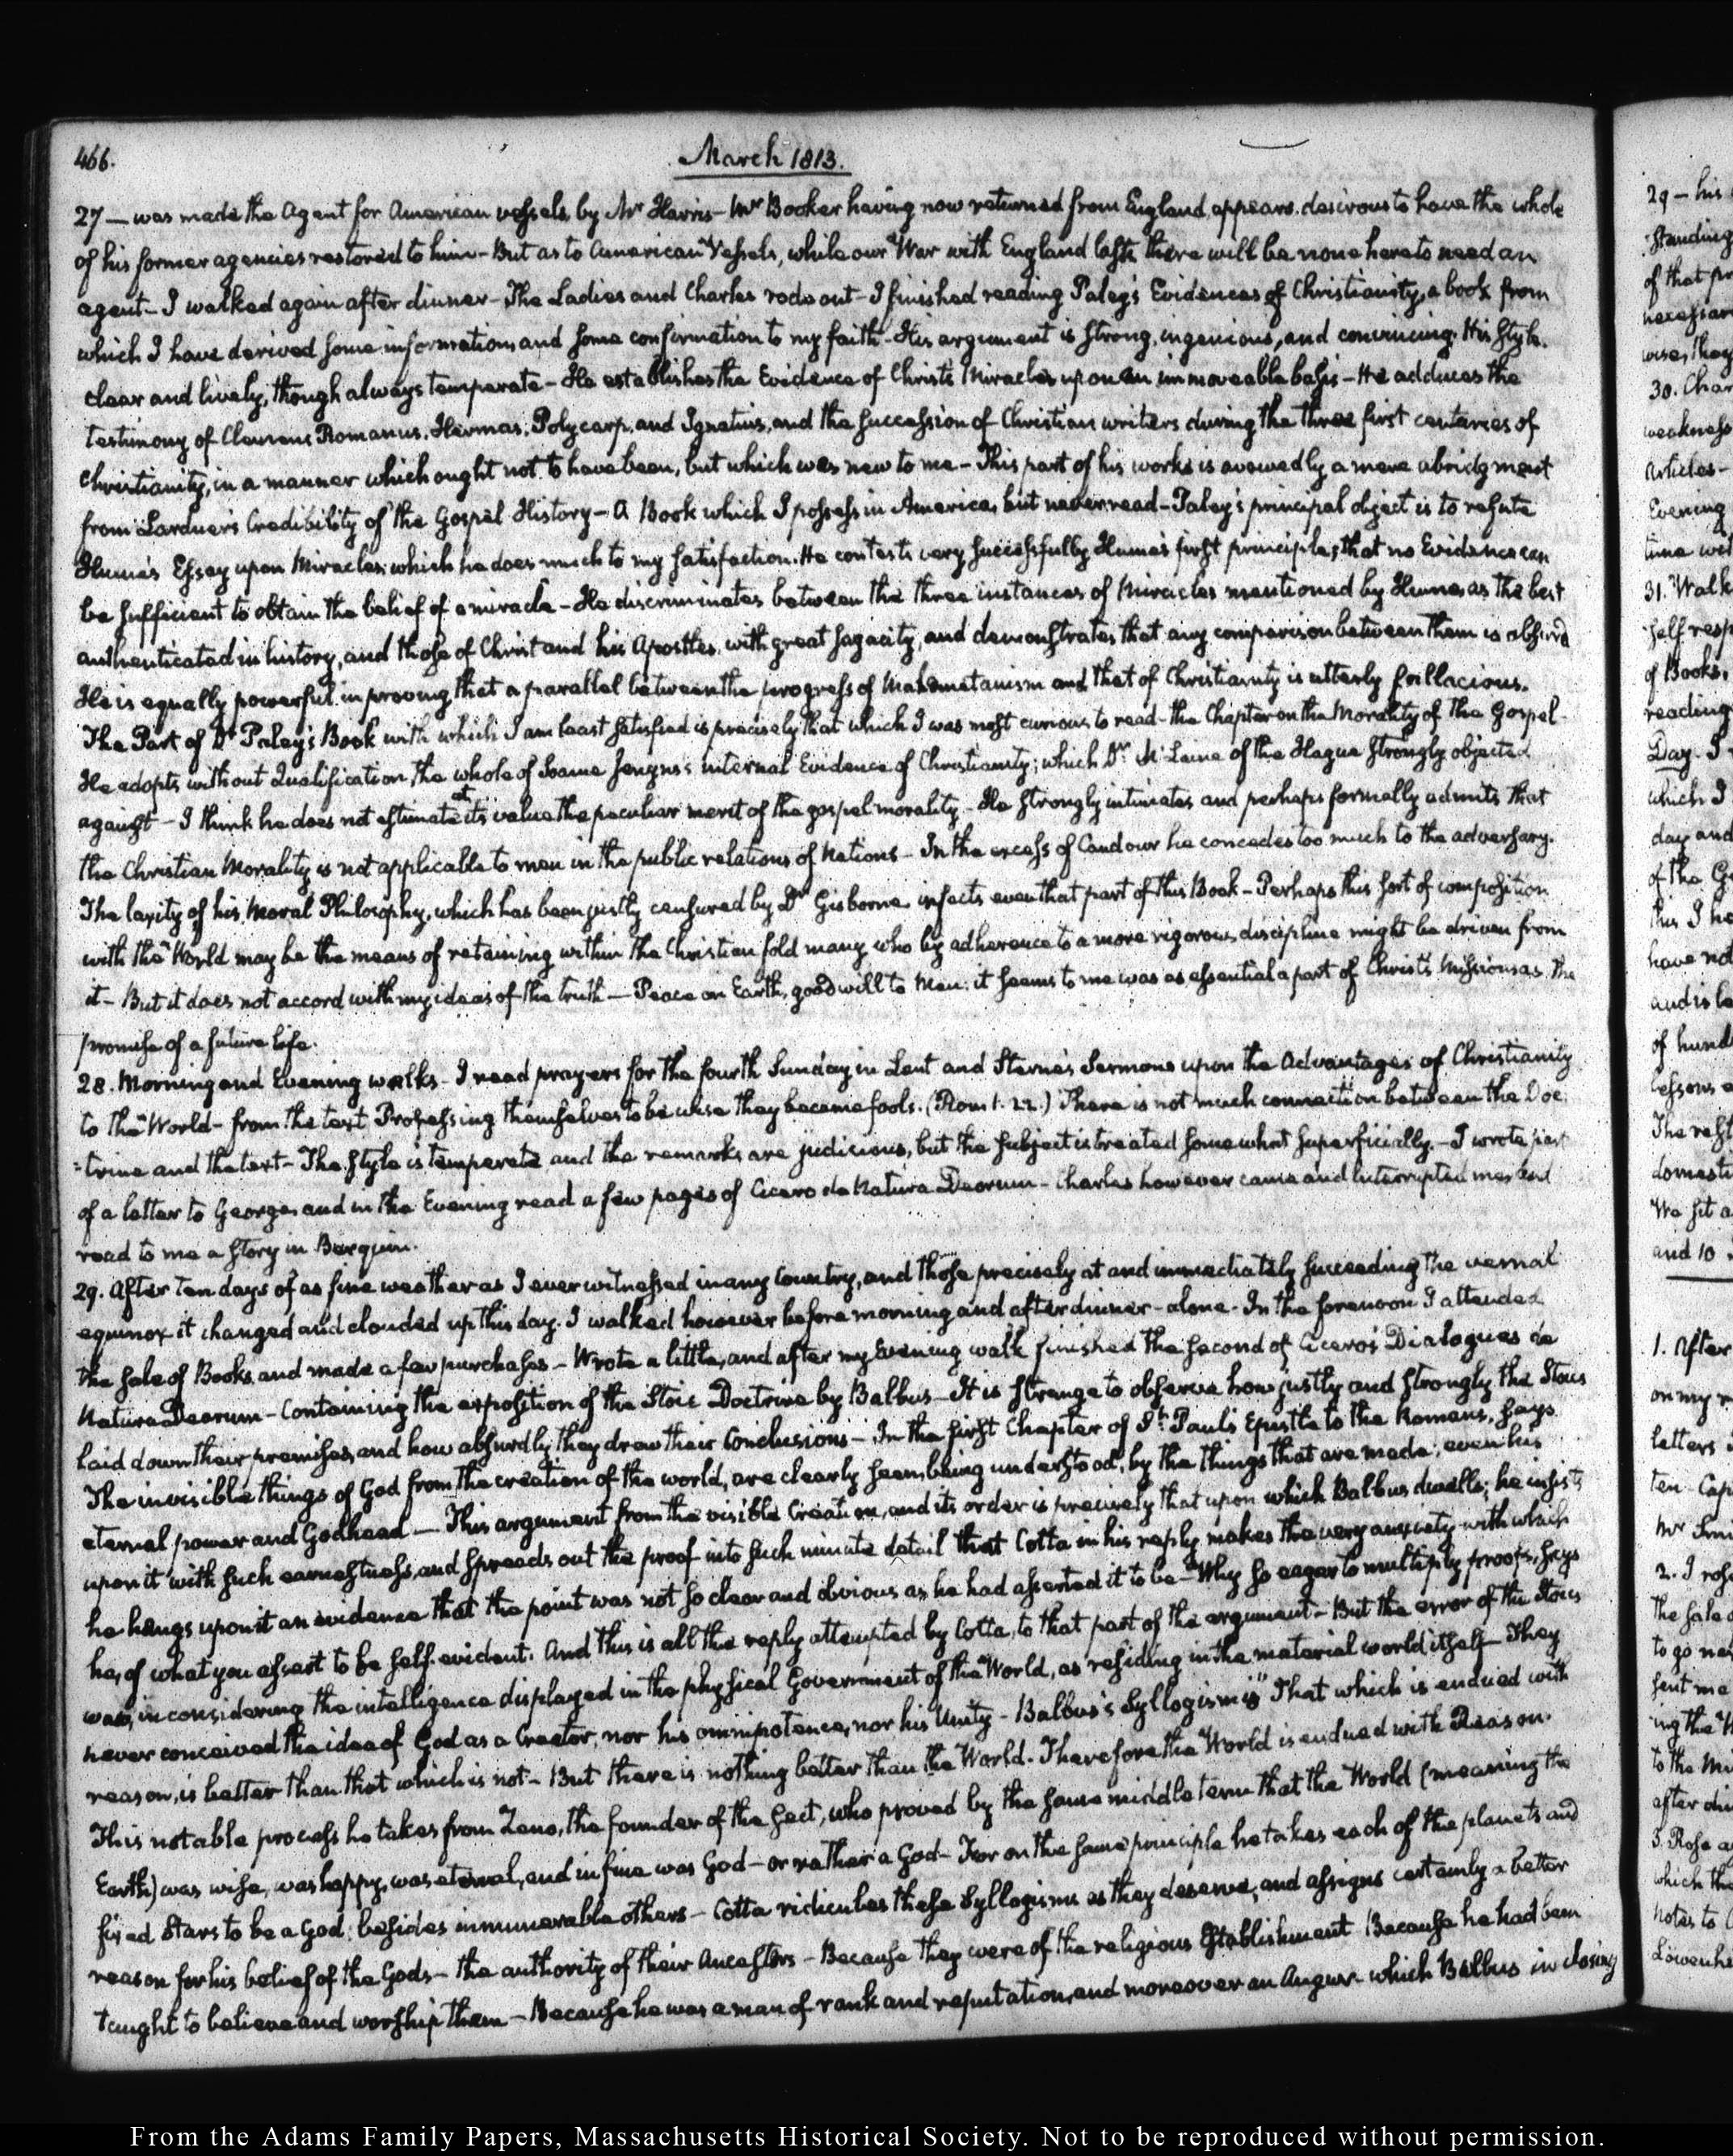 466.
March 1813.
27 — was made the Agent for American vessels, by Mr Harris – Mr Booker having now returned from England, appears desirous to have the whole
of his former agencies restored to him – But as to American Vessels, while our War with England lasts there will be none here to need an
agent – I walked again after dinner – The Ladies and Charles rode out – I finished reading Paley's Evidences of Christianity, a book from
which I have derived some information, and some confirmation to my faith – His argument is strong, ingenious, and convincing. His style.
clear and lively, though always temperate – He establishes the Evidence of Christ's Miracles upon an immoveable basis – He adduces the
testimony of Clemens Romanus, Hermas, Polycarp, and Ignatius, and the succession of Christian writers during the three first centuries of
Christianity, in a manner which ought not to have been, but which was new to me – This part of his works is avowedly a mere abridgment
from Lardner's Credibility of the Gospel History – A Book which I possess in America, but never read – Paley's principal object is to refute
Hume's Essay upon Miracles which he does much to my satisfaction. He contests very successfully Hume's first principle, that no Evidence can
be sufficient to obtain the belief of a miracle – He discriminates between the three instances of Miracles mentioned by Hume as the best
authenticated in history, and those of Christ and his Apostles, with great sagacity, and demonstrates that any comparison between them is absurd
He is equally powerful in proving that a parallel between the progress of Mahometanism and that of Christianity is utterly fallacious.
The Part of Dr Paley's Book with which I am least satisfied is precisely that which I was most curious to read – the Chapter on the Morality of the Gospel –
He adopts without Qualification, the whole of Soame Jenyns's internal Evidence of Christianity; which Dr McLaine of the Hague strongly objected
against – I think he does not estimate at its value the peculiar merit of the gospel morality – He strongly intimates and perhaps formally admits that
the Christian Morality is not applicable to men in the public relations of Nations – In the excess of Candour he concedes too much to the adversary.
The laxity of his Moral Philosophy, which has been justly censured by Dr Gisborne infects even that part of this Book – Perhaps this sort of composition
with the World may be the means of retaining within the Christian fold many who by adherence to a more rigorous discipline might be driven from
it – But it does not accord with my ideas of the truth — Peace on Earth, good will to Men: it seems to me was as essential a part of Christ's Mission as the
promise of a future life.
28. Morning and Evening walks – I read prayers for the fourth Sunday in Lent and Sterne's Sermons upon the Advantages of Christianity
to the World – from the text Professing themselves to be wise they became fools. (Rom 1. 22.) There is not much connection between the Doc
=trine and the text – The style is temperate and the remarks are judicious, but the subject is treated somewhat superficially. – I wrote part
of a letter to George, and in the Evening read a few pages of Cicero de Natura Deorum – Charles however came and interrupted me, and
read to me a story in Berquin.
29. After ten days of as fine weather as I ever witnessed in any Country, and those precisely at and immediately succeeding the vernal
equinox it changed and clouded up this day. I walked however before morning and after dinner – alone – In the forenoon I attended
the sale of Books, and made a few purchases – Wrote a little, and after my Evening walk finished the second of Cicero's Dialogues de
Natura Deorum – Containing the exposition of the Stoic Doctrine by Balbus – It is strange to observe how justly and strongly the Stoics
laid down their premises, and how absurdly they drew their Conclusions – In the first Chapter of St. Paul's Epistle to the Romans, says
The invisible things of God from the creation of the world, are clearly seen, being understood, by the things that are made; even his
eternal power and Godhead — This argument from the visible Creation, and its order is precisely that upon which Balbus dwells; he insists
upon it with such earnestness, and spreads out the proof into such minute detail that Cotta in his reply makes the very anxiety with which
he hangs upon it an evidence that the point was not so clear and obvious as he had asserted it to be – Why so eager to multiply proofs, says
he, of what you assert to be self-evident. And this is all the reply attempted by Cotta, to that part of the argument – But the error of the Stoics
was, in considering the intelligence displayed in the physical Government of the World, as residing in the material world itself – They
never conceived the idea of God as a Creator, nor his omnipotence, nor his Unity – Balbus's Syllogism is "That which is endued with
reason, is better than that which is not – But there is nothing better than the World. Therefore the World is endued with Reason.
This notable process he takes from Zeno, the founder of the sect, who proved by the same middle term that the World (meaning the
Earth) was wise, was happy, was eternal, and in fine was God – or rather a God – For on the same principle he takes each of the planets and
fixed Stars to be a God; besides innumerable others – Cotta ridicules these Syllogisms as they deserve, and assigns certainly a better
reason for his belief of the Gods – the authority of their Ancestors – Because they were of the religious Establishment Because he had been
taught to believe and worship them – Because he was a man of rank and reputation, and moreover an Augur – which Balbus in closing
29 – his
standing
of that
wise, they
30. Char
weakness
Articles –
Evening
31. Walk
self resp
of Books.
reading
Day. I
which I
day and
of the
this I
have not
of hund
lessons
The rest
We sit a
and 10
1. After
on my
letters
ten
Mr
2. I rose
The sale
to go
sent me
ing the
to the
after
3. Rose
which the
notes to
From the Adams Family Papers, Massachusetts Historical Society. Not to be reproduced without permission.